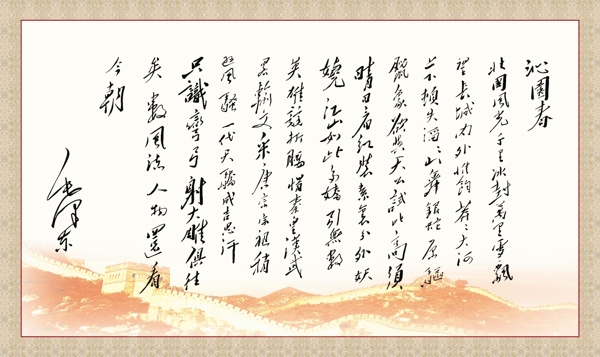 沁園春
北国風光千里冰封萬里雪飄
望長城内外惟餘莽〻大河
上下頓失滔〻山舞銀蛇原驅
臘象欲與天公試比高須
晴日看紅裝素裹分外妖
嬈江山如此多嬌引無數
英雄競折腰惜秦皇漢武
略輸文采唐宗宋祖稍
遜風騷一代天驕成吉思汗
只識彎弓射大雕俱往
矣數風流人物還看
今朝
毛澤東